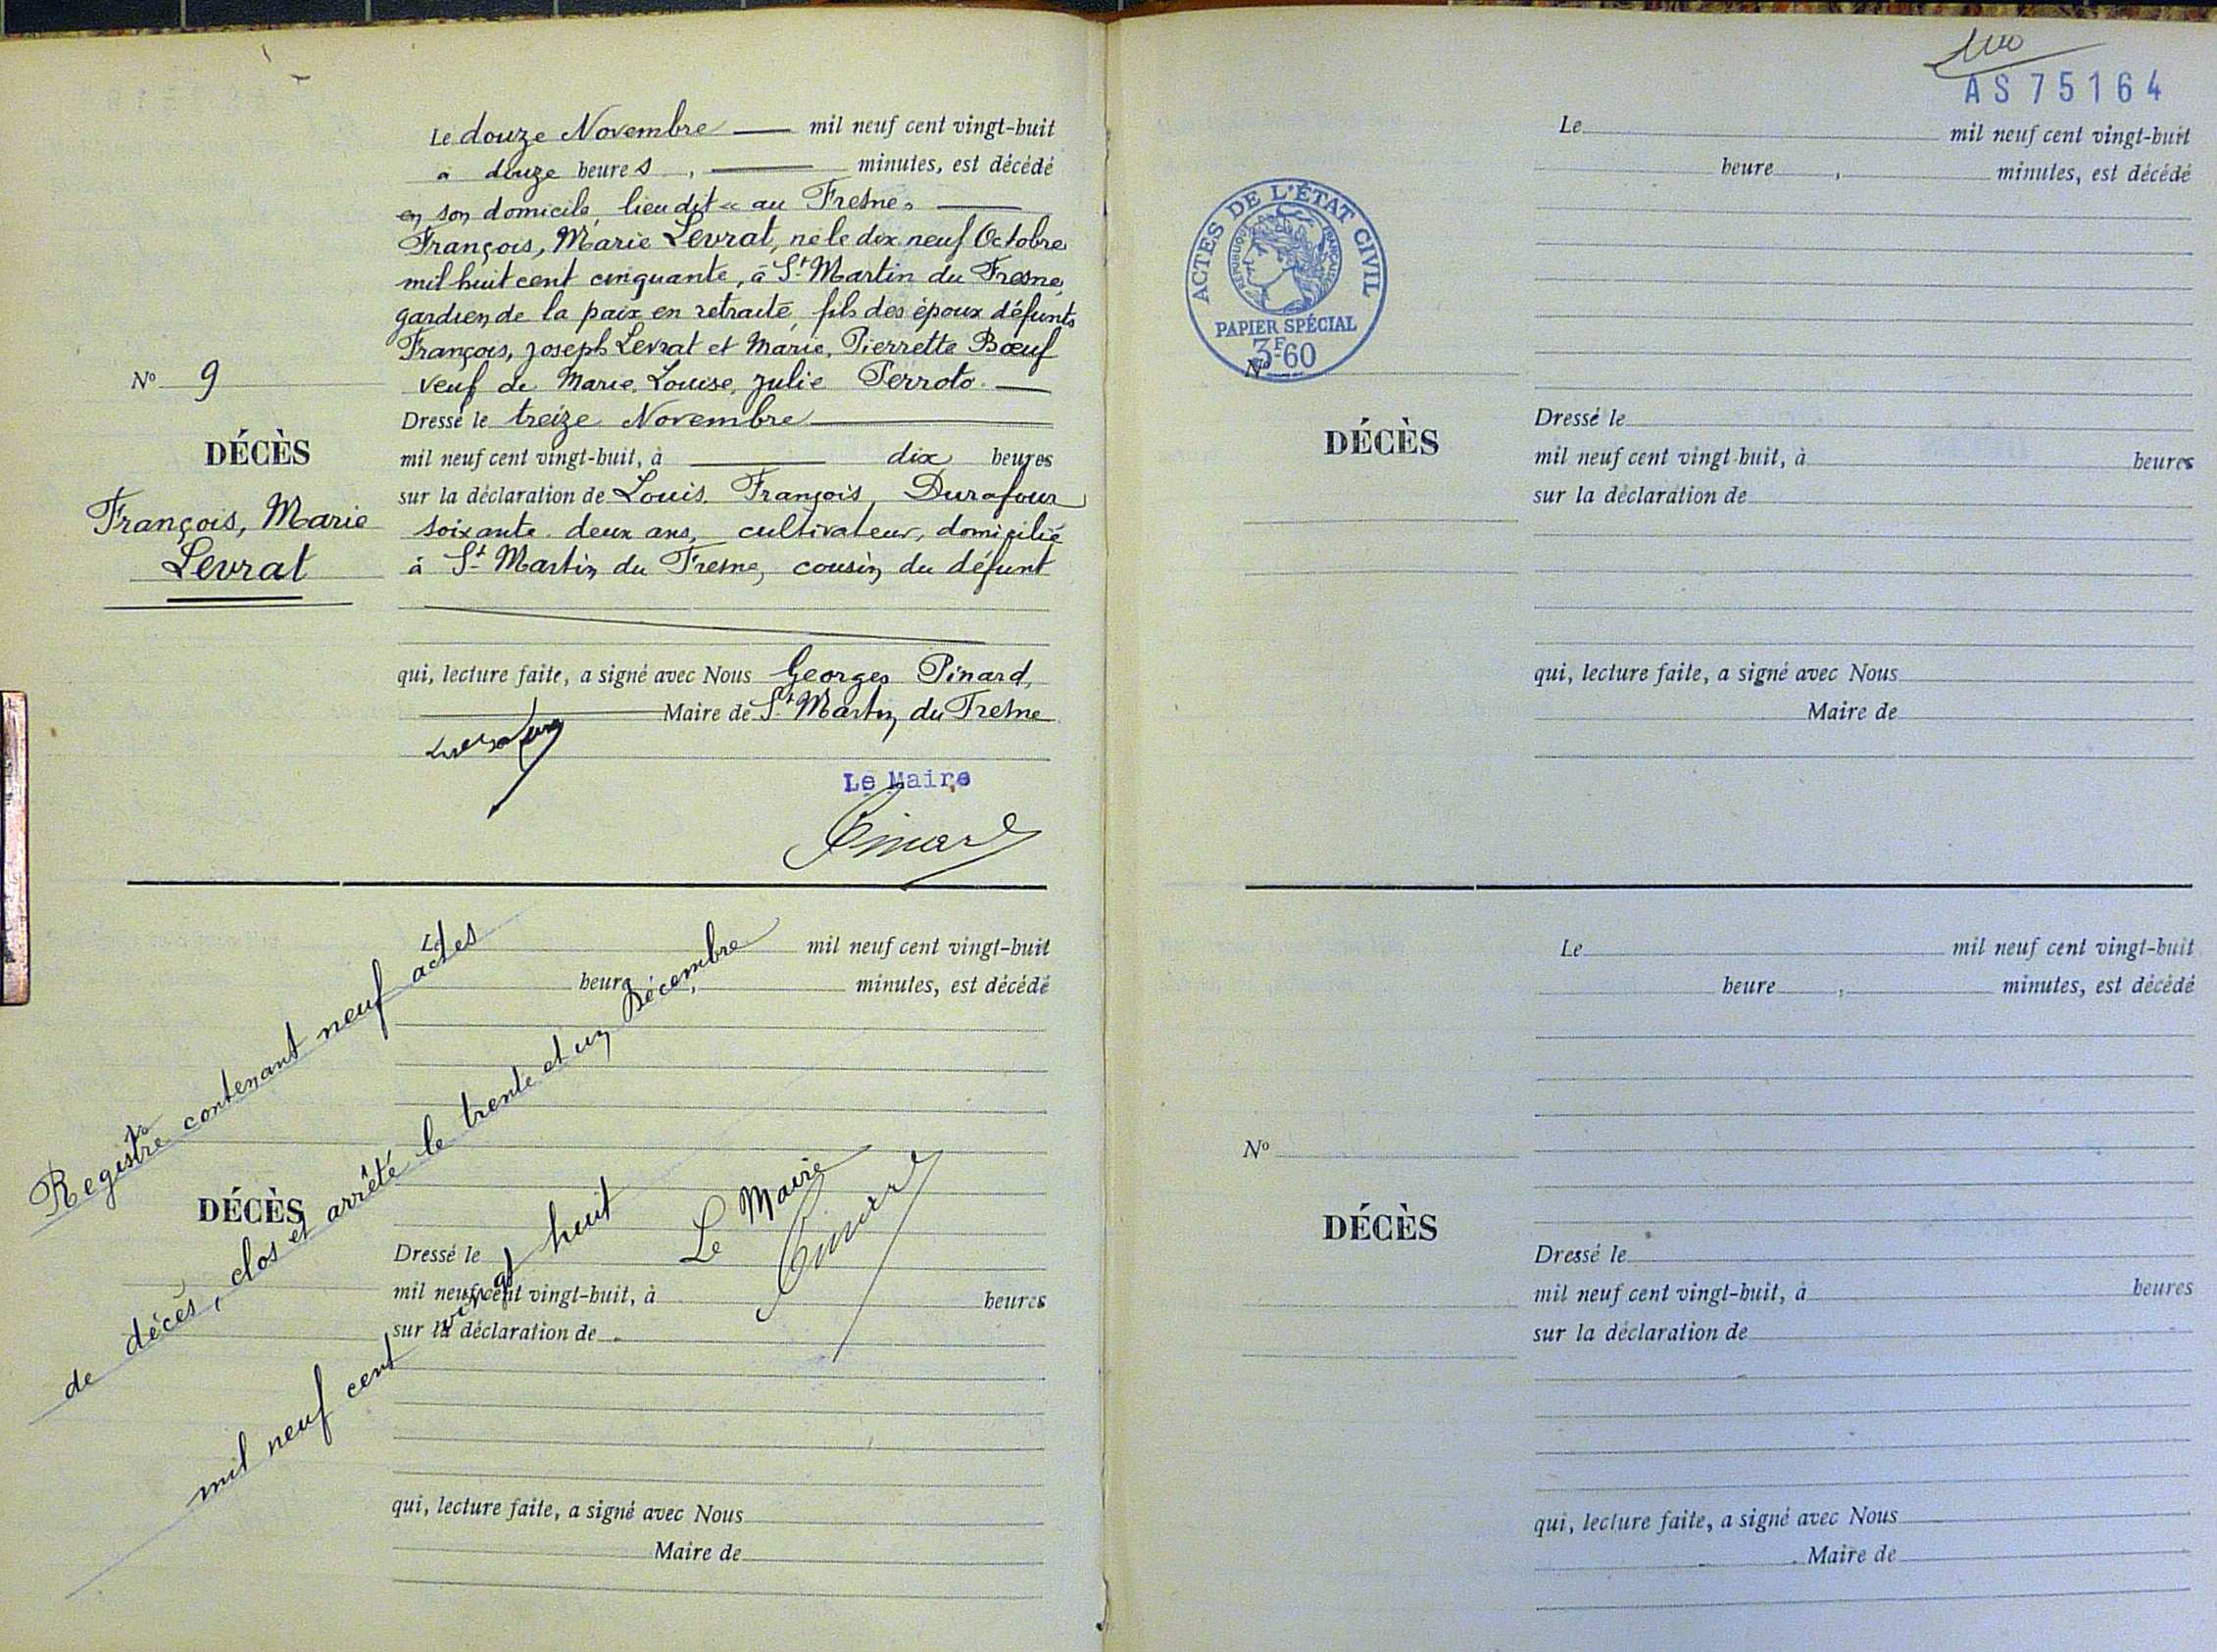 Le douze Novembre mil neuf cent vingt-huit
à douze heures, minutes, est décédé
en son domicile, lieu dit « au Fresne »
François, Marie Levrat, né le dix neuf Octobre
mil huit cent cinquante, à St Martin du Fresne,
gardien de la paix en retraite, fils des époux défunts
François, Joseph Levrat et Marie, Pierrette Bœuf
veuf de Marie, Louise, Julie Perroto.
No 9
DÉCÈS
François, Marie
Levrat
Dressé le treize Novembre
mil neuf cent vingt-huit, à dix heures
sur la déclaration de Louis François, Durafour
soixante deux ans, cultivateur, domicilié
à St Martin du Fresne, cousin du défunt
qui, lecture faite, a signé avec Nous Georges Pinard,
Maire de St Martin du Fresne
Durafour
Le Maire
Pinard
Le mil neuf cent vingt-huit
heure , minutes, est décédé
DÉCÈS
Dressé le
mil neuf cent vingt-huit, à heures
sur la déclaration de
qui, lecture faite, a signé avec Nous
Maire de
Registre contenant neuf actes
de décès, clos et arrêté le trente et un Décembre
mil neuf cent vingt huit
Le Maire
Pinard
AS 75164
ACTES DE L'ÉTAT CIVIL
RÉPUBLIQUE FRANÇAISE
PAPIER SPÉCIAL
3F60
Le mil neuf cent vingt-huit
heure , minutes, est décédé
No
DÉCÈS
Dressé le
mil neuf cent vingt-huit, à heures
sur la déclaration de
qui, lecture faite, a signé avec Nous
Maire de
Le mil neuf cent vingt-huit
heure , minutes, est décédé
No
DÉCÈS
Dressé le
mil neuf cent vingt-huit, à heures
sur la déclaration de
qui, lecture faite, a signé avec Nous
Maire de